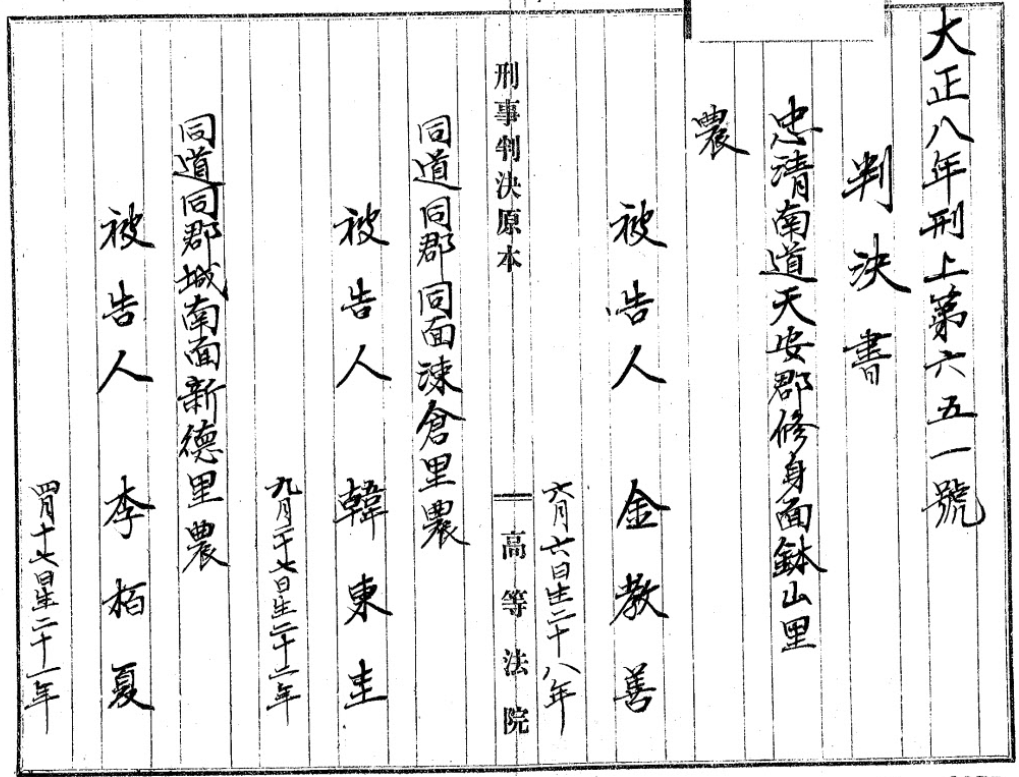 大正八年刑上第六五一號
判決書
忠清南道天安郡修身面鉢山里
農
被告人 金教善
六月六日生二十八年
刑事判決原本 高等法院
同道同郡同面涑倉里農
被告人 韓東圭
九月二十七日生二十二年
同道同郡城南面新德里農
被告人 李栢夏
四月十七日生二十一年